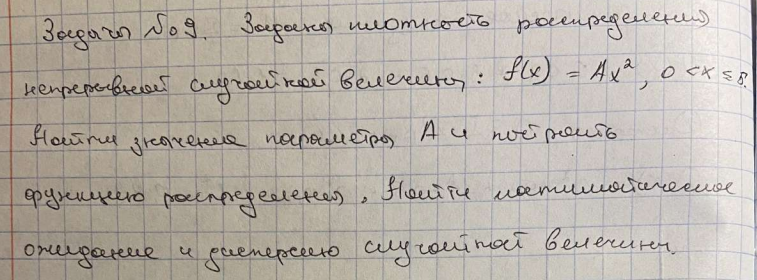 Задача №9. Задана плотность распределения
непрерывной случайной величины: f(x) = Ax², 0 < x ≤ 8.
Найти значение параметра A и построить
функцию распределения. Найти математическое
ожидание и дисперсию случайной величины.